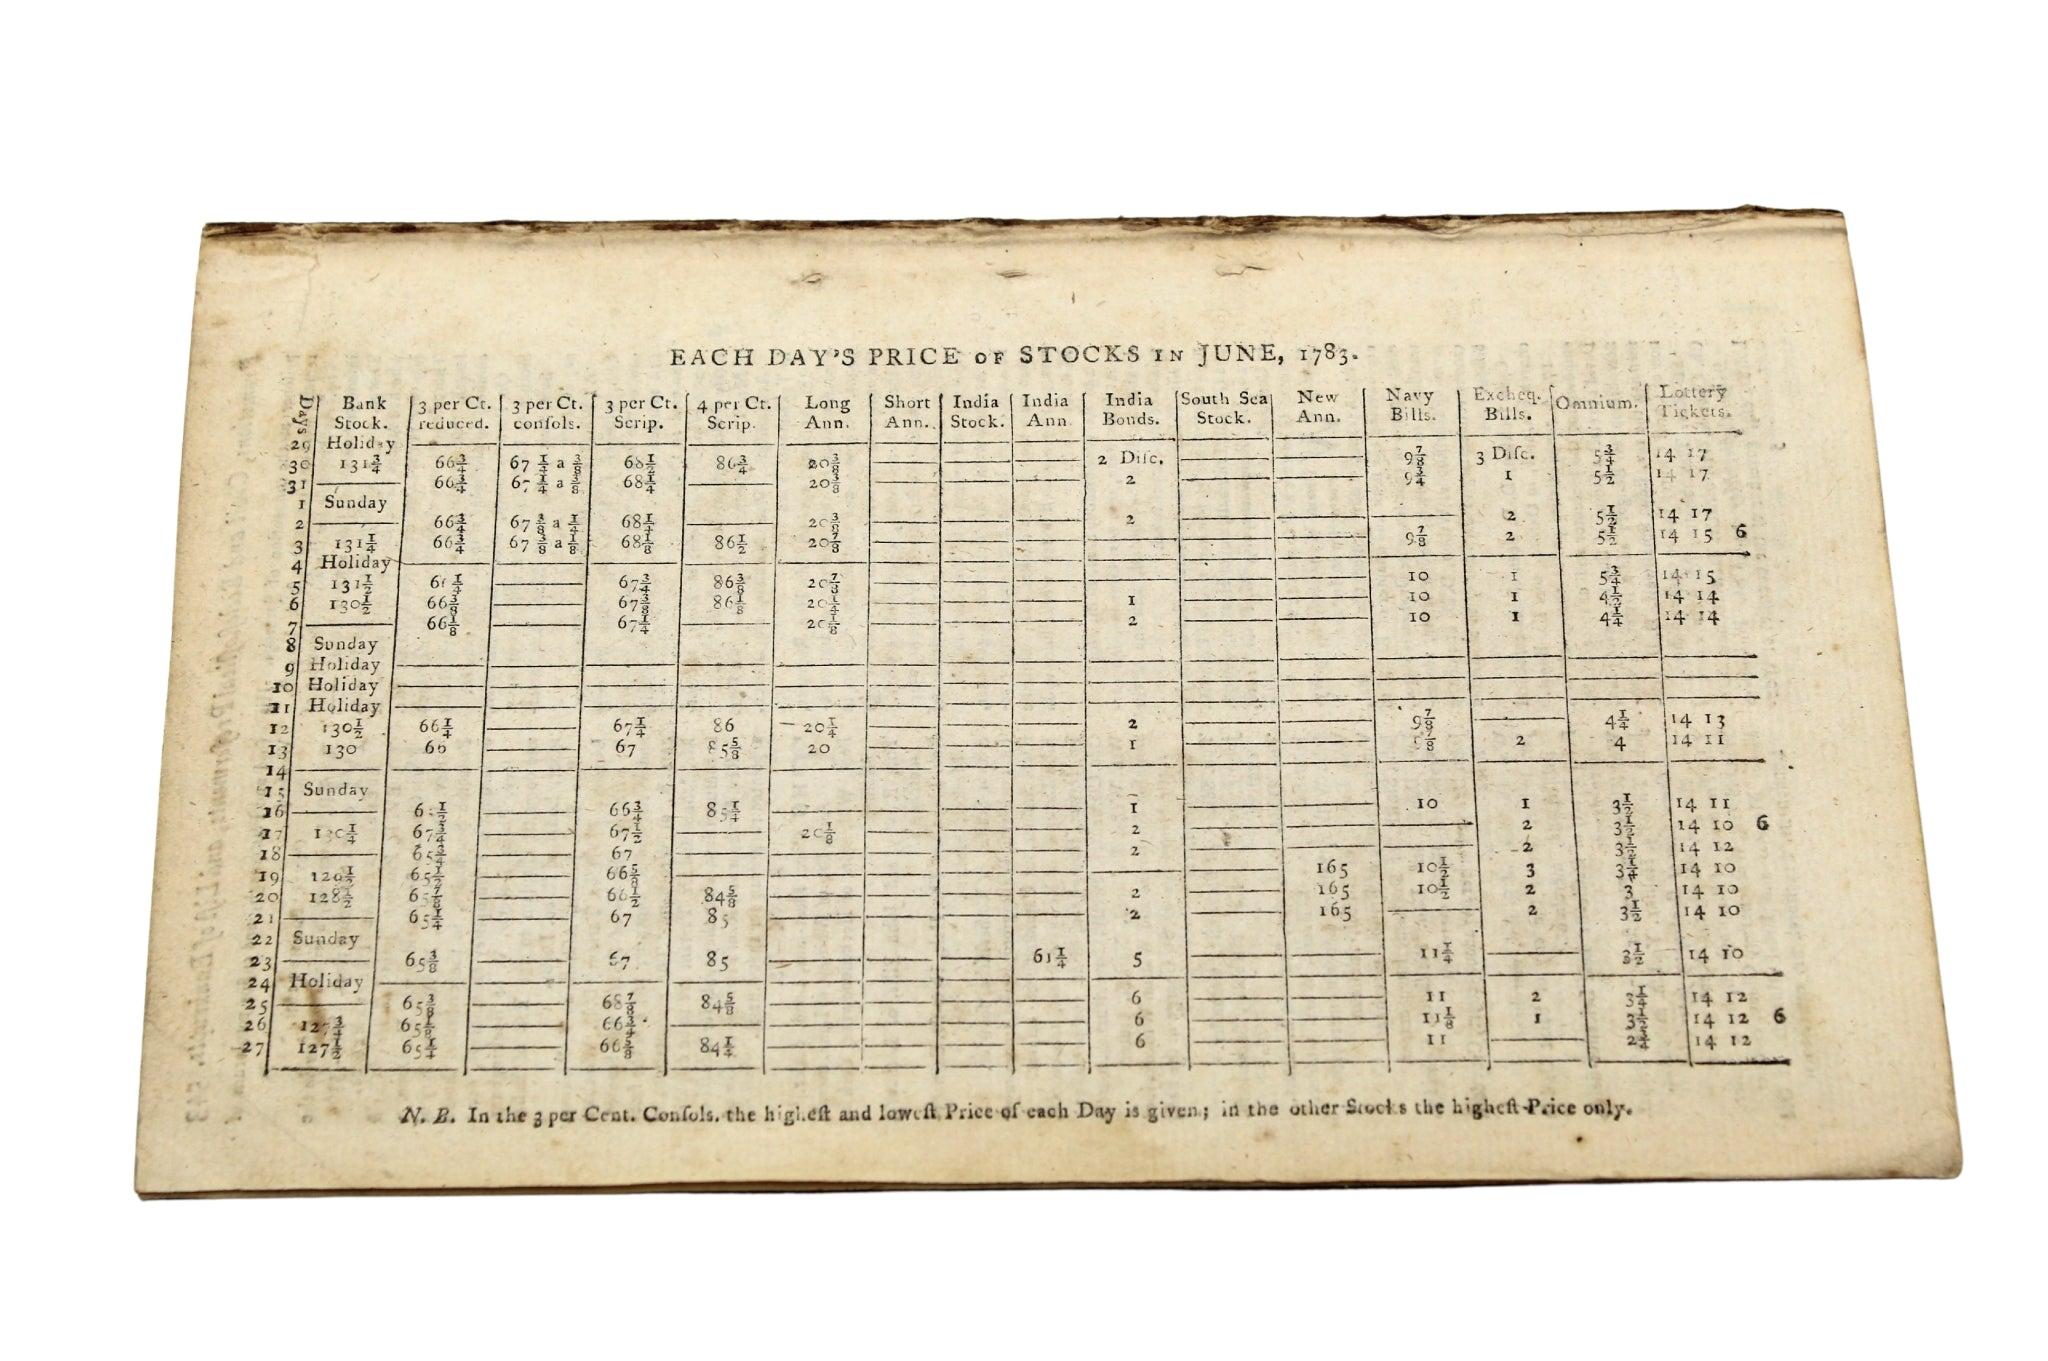 EACH DAY'S PRICE OF STOCKS IN JUNE, 1783.
Days Bank Stock. 3 per Ct. reduced. 3 per Ct. conſols. 3 per Ct. Scrip. 4 per Ct. Scrip. Long Ann. Short Ann. India Stock. India Ann India Bonds. South Sea Stock. New Ann. Navy Bills. Excheq. Bills. Omnium. Lottery Tickets.
29 Holiday
30 131¾ 66¾ 67 ¼ a ⅜ 68½ 86¾ 20⅜ 2 Diſc. 9⅞ 3 Diſc. 5¾ 14 17
31 66¾ 67 ¼ a ⅜ 68¼ 20⅜ 2 9¾ 1 5½ 14 17
1 Sunday
2 66¾ 67 ⅜ a ¼ 68¼ 20⅜ 2 2 5½ 14 17
3 131¼ 66¾ 67 ⅜ a ⅛ 68⅛ 86½ 20⅞ 9⅞ 2 5½ 14 15 6
4 Holiday
5 131½ ¼ 67¾ 86⅜ 20⅞ 10 1 5¾ 14 15
6 130½ 66⅜ 67⅜ 86⅛ 20¼ 1 10 1 4½ 14 14
7 66⅛ 67¼ 20⅛ 2 10 1 4¼ 14 14
8 Sunday
9 Holiday
10 Holiday
11 Holiday
12 130½ 66¼ 67¼ 86 20¼ 2 9⅞ 4¼ 14 13
13 130 66 67 85⅝ 20 1 ⅞ 2 4 14 11
14
15 Sunday
16 66¾ 85¼ 1 10 1 3½ 14 11
17 130¼ 67¾ 67½ 20⅛ 2 2 3½ 14 10 6
18 65¾ 67 2 2 3½ 14 12
19 65½ 66⅝ 165 10½ 3 3¼ 14 10
20 128½ 65⅞ 66½ 84⅝ 2 165 10½ 2 3 14 10
21 65¼ 67 85 2 165 2 3½ 14 10
22 Sunday
23 65⅜ 67 85 61¼ 5 11¼ 3½ 14 10
24 Holiday
25 65⅜ 68⅞ 84⅝ 6 11 2 3¼ 14 12
26 127¾ 65⅛ 66¾ 6 11⅛ 1 3½ 14 12 6
27 127½ 65¼ 66⅝ 84¼ 6 11 2¾ 14 12
N. B. In the 3 per Cent. Conſols. the higheſt and loweſt Price of each Day is given; in the other Stocks the higheſt Price only.